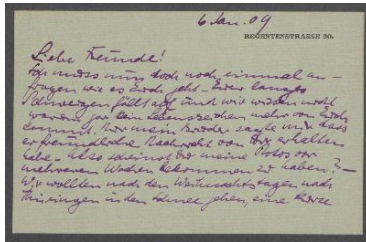 6 Jan. 09
REGENTENSTRASSE 20.
Liebe Freunde!
Ich muss nun doch noch einmal an-
fragen wie es Euch geht. Euer langes
Schweigen fällt auf und wir wissen nicht
warum gar kein Lebenszeichen mehr von Euch
kommt. Nur mein Bruder sagte mir dass
er freundliche Nachricht von Dir erhalten
habe. Also scheinst Du meine Photos vor
mehreren Wochen bekommen zu haben? –
Wir wollten nach den Weihnachtstagen nach
Thüringen in den Schnee gehen, eine kurze